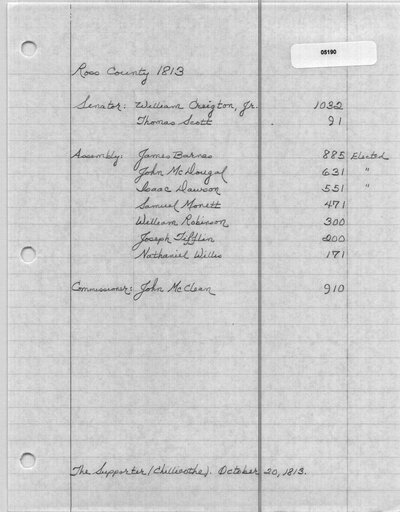 05190
Ross County 1813
Senator: William Creigton, Jr. 1032
Thomas Scott 91
Assembly: James Barnes 885 Elected
John McDougal 631 "
Isaac Dawson 551 "
Samuel Monett 471
William Robinson 300
Joseph Tifflin 200
Nathaniel Willis 171
Commissioner: John McClean 910
The Supporter (Chillicothe). October 20, 1813.